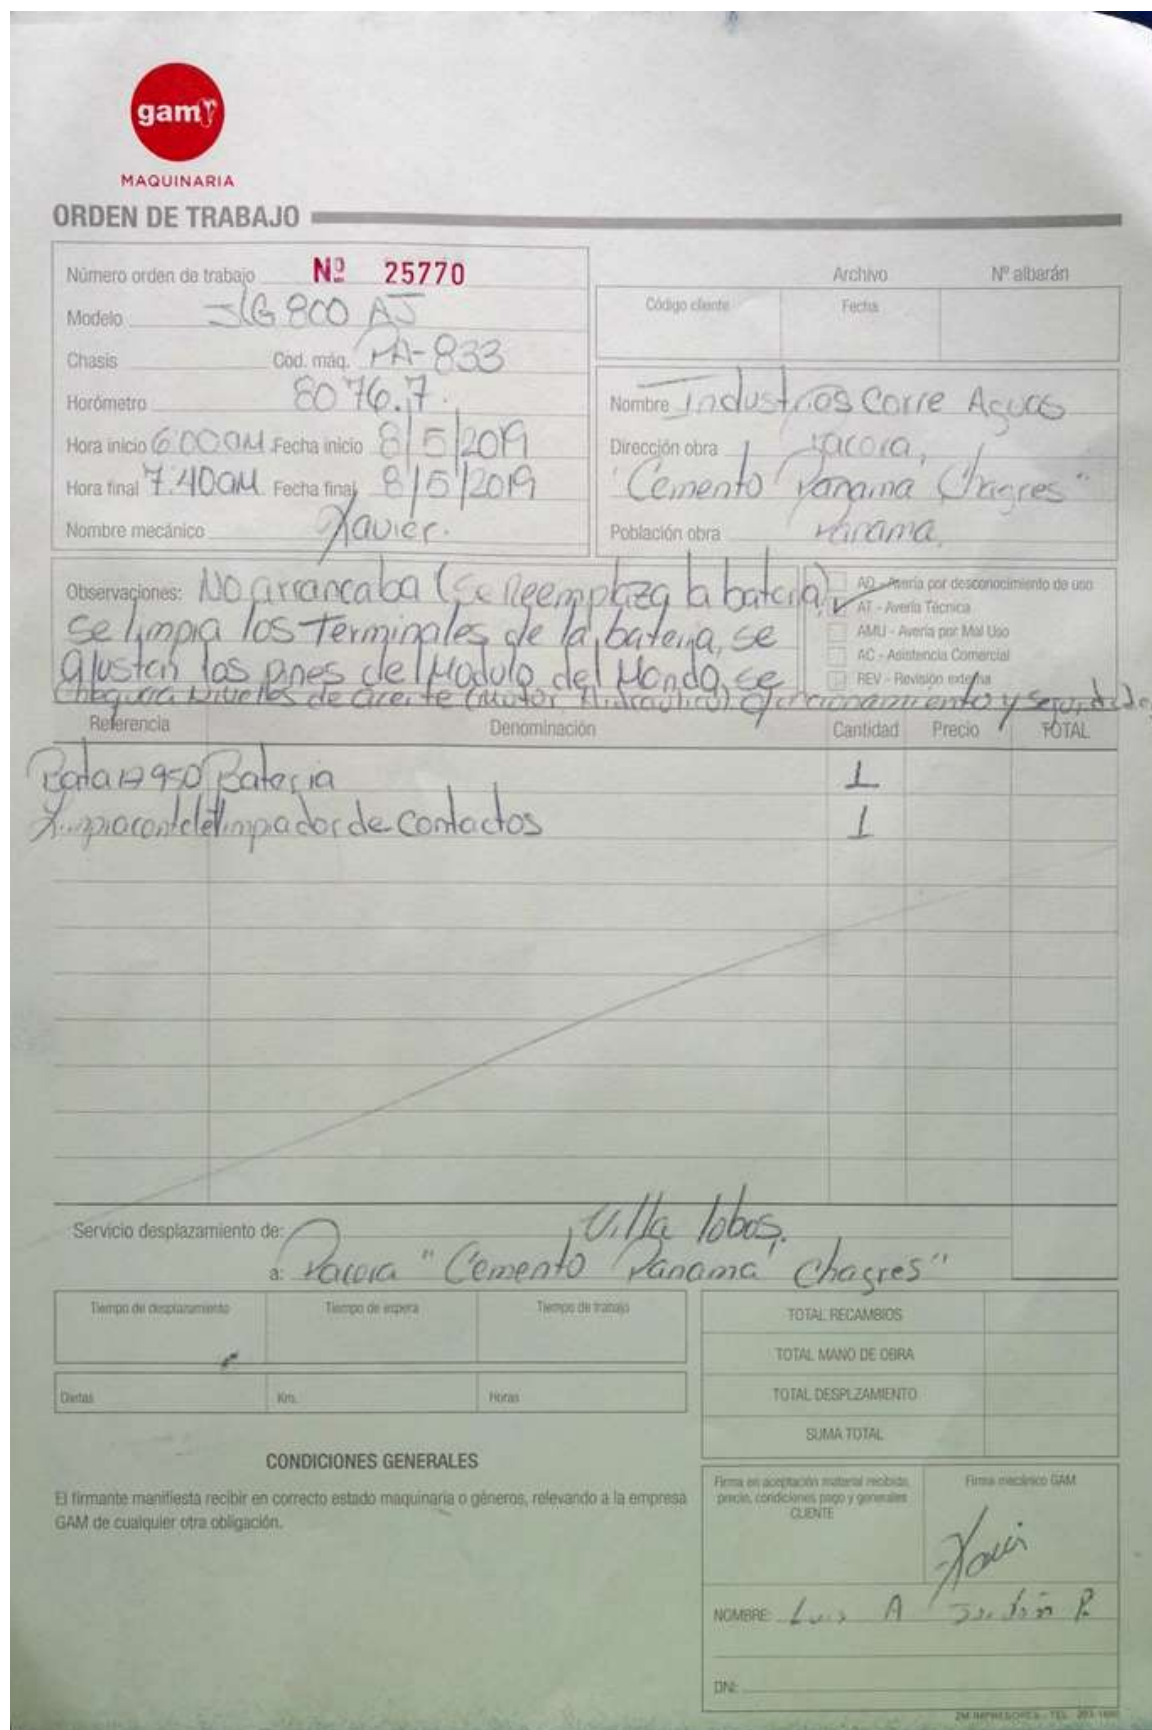 gam
MAQUINARIA
ORDEN DE TRABAJO
Número orden de trabajo Nº 25770
Modelo JLG 800 AJ
Chasis Cod. máq. PA-833
Horómetro 8076.7
Hora inicio 6:00AM Fecha inicio 8/5/2019
Hora final 7:40AM Fecha final 8/5/2019
Nombre mecánico Xavier.
Archivo Nº albarán
Código cliente Fecha
Nombre Industrias Corre Aguas
Dirección obra Pacora,
"Cemento Panama Chagres"
Población obra Panama.
Observaciones: No arrancaba (se Reemplaza la bateria)
se limpia los Terminales de la bateria, se
ajustan los pines del Modulo del Mando, se
Niveles de aceite (Motor Hidraulico) y
AD - Avería por desconocimiento de uso
AT - Avería Técnica
AMU - Avería por Mal Uso
AC - Asistencia Comercial
REV - Revisión externa
Referencia Denominación Cantidad Precio TOTAL
950 Bateria 1
limpiador de Contactos 1
Servicio desplazamiento de: Villa lobos,
a: Pacora "Cemento Panama Chagres"
Tiempo de desplazamiento Tiempo de espera Tiempo de trabajo
Dietas Km. Horas
TOTAL RECAMBIOS
TOTAL MANO DE OBRA
TOTAL DESPLZAMIENTO
SUMA TOTAL
CONDICIONES GENERALES
El firmante manifiesta recibir en correcto estado maquinaria o géneros, relevando a la empresa
GAM de cualquier otra obligación.
Firma en aceptación material recibido,
precio, condiciones pago y generales
CLIENTE
Firma mecánico GAM
Xavi
NOMBRE: Luis A
DNI:
2M IMPRESORES - TEL.